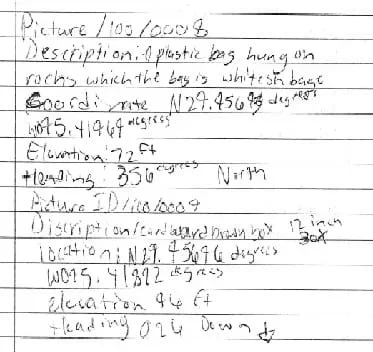 Picture / 100 / 0008
Description: A plastic bag hung on
rocks which the bag is whitesh bage
Coordinate N29.45695 degrees
W095.41964 degrees
Elevation: 72 Ft
Heading: 356 degrees North
Picture ID / 100 / 0009
Discription / cardboard brown box 12 inch
location: N29.45696 degrees
W095.41892 degrees
elevation 96 Ft
Heading 026 Down